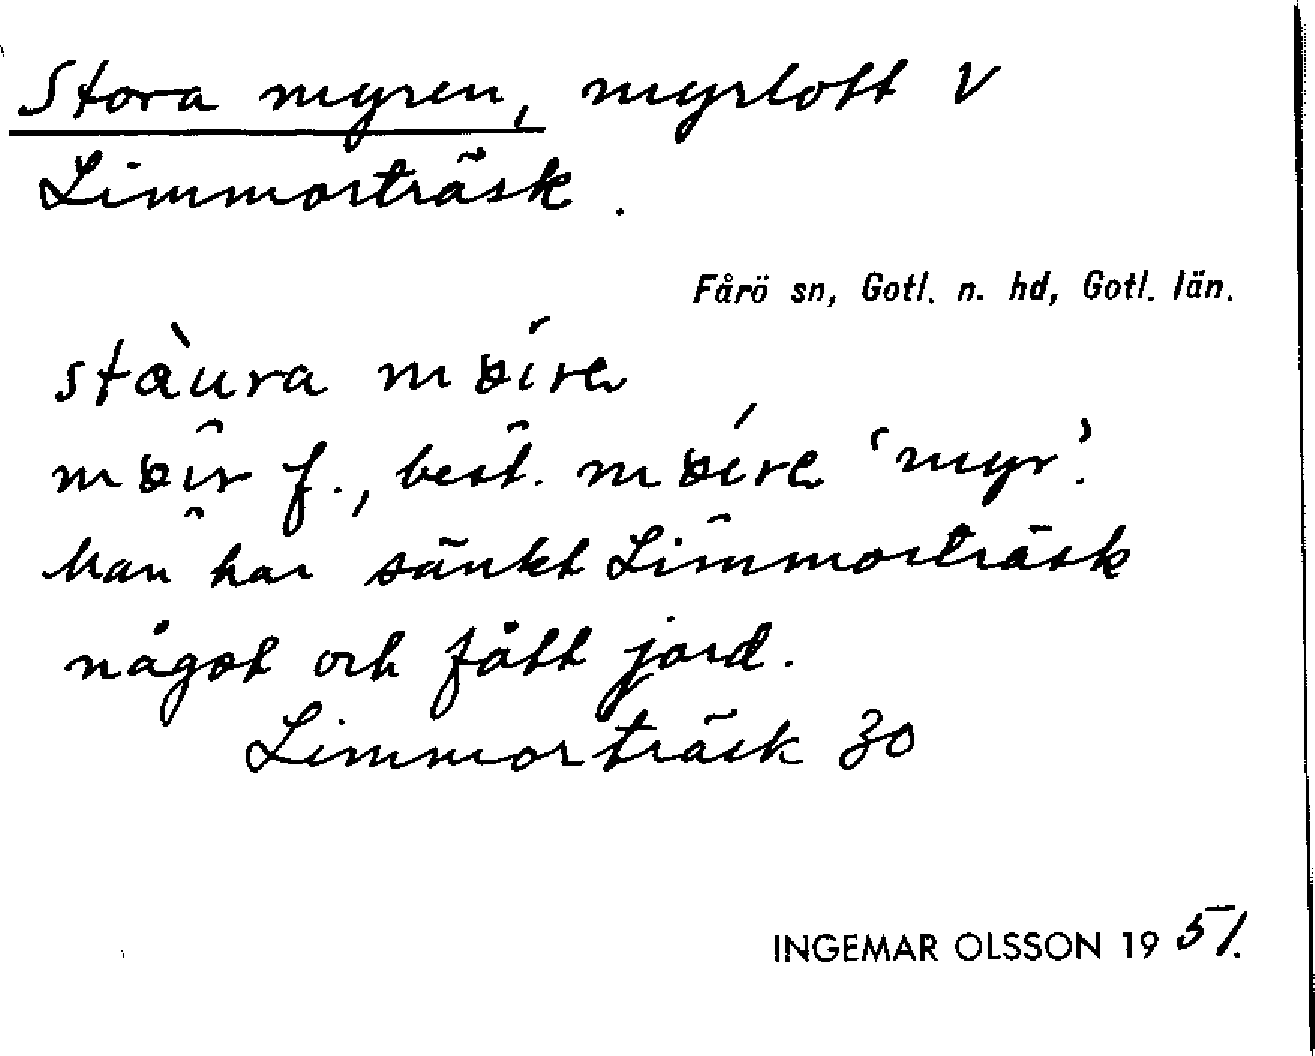 Stora myren, myrlott V
Limmorträsk.
Fårö sn, Gotl. n. hd, Gotl. län.
stàura
f., best. 'myr'.
Man har sänkt Limmorträsk
något och fått jord.
Limmorträsk 30
INGEMAR OLSSON 19 51.